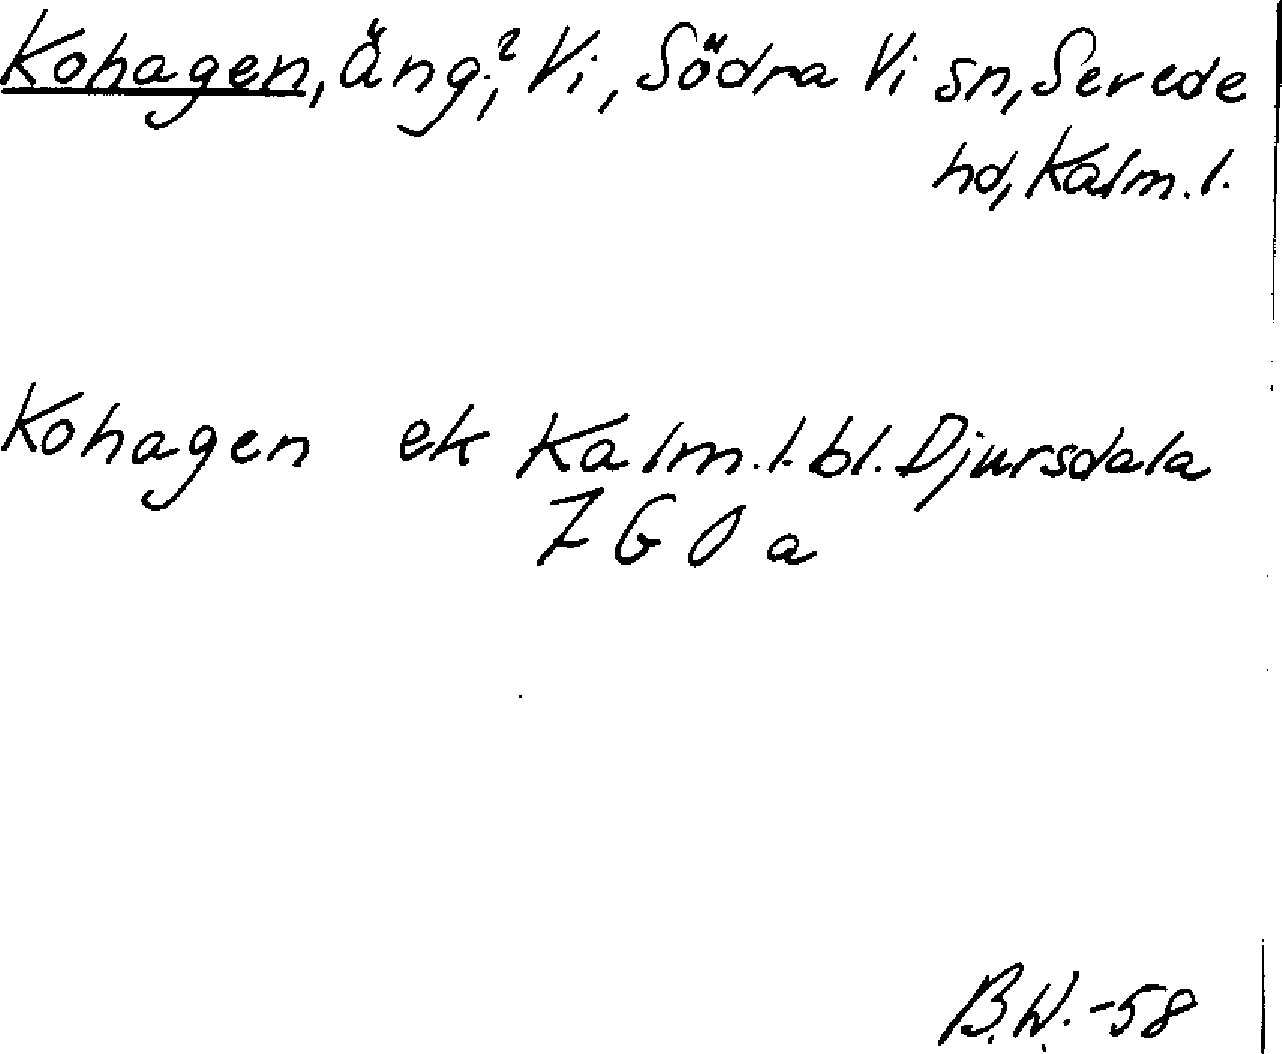 Kohagen, äng;? Vi, Södra Vi sn, Sevede
hd, Kalm. l.
Kohagen ek Kalm. l. bl. Djursdala
Z G O a
B.W. -58